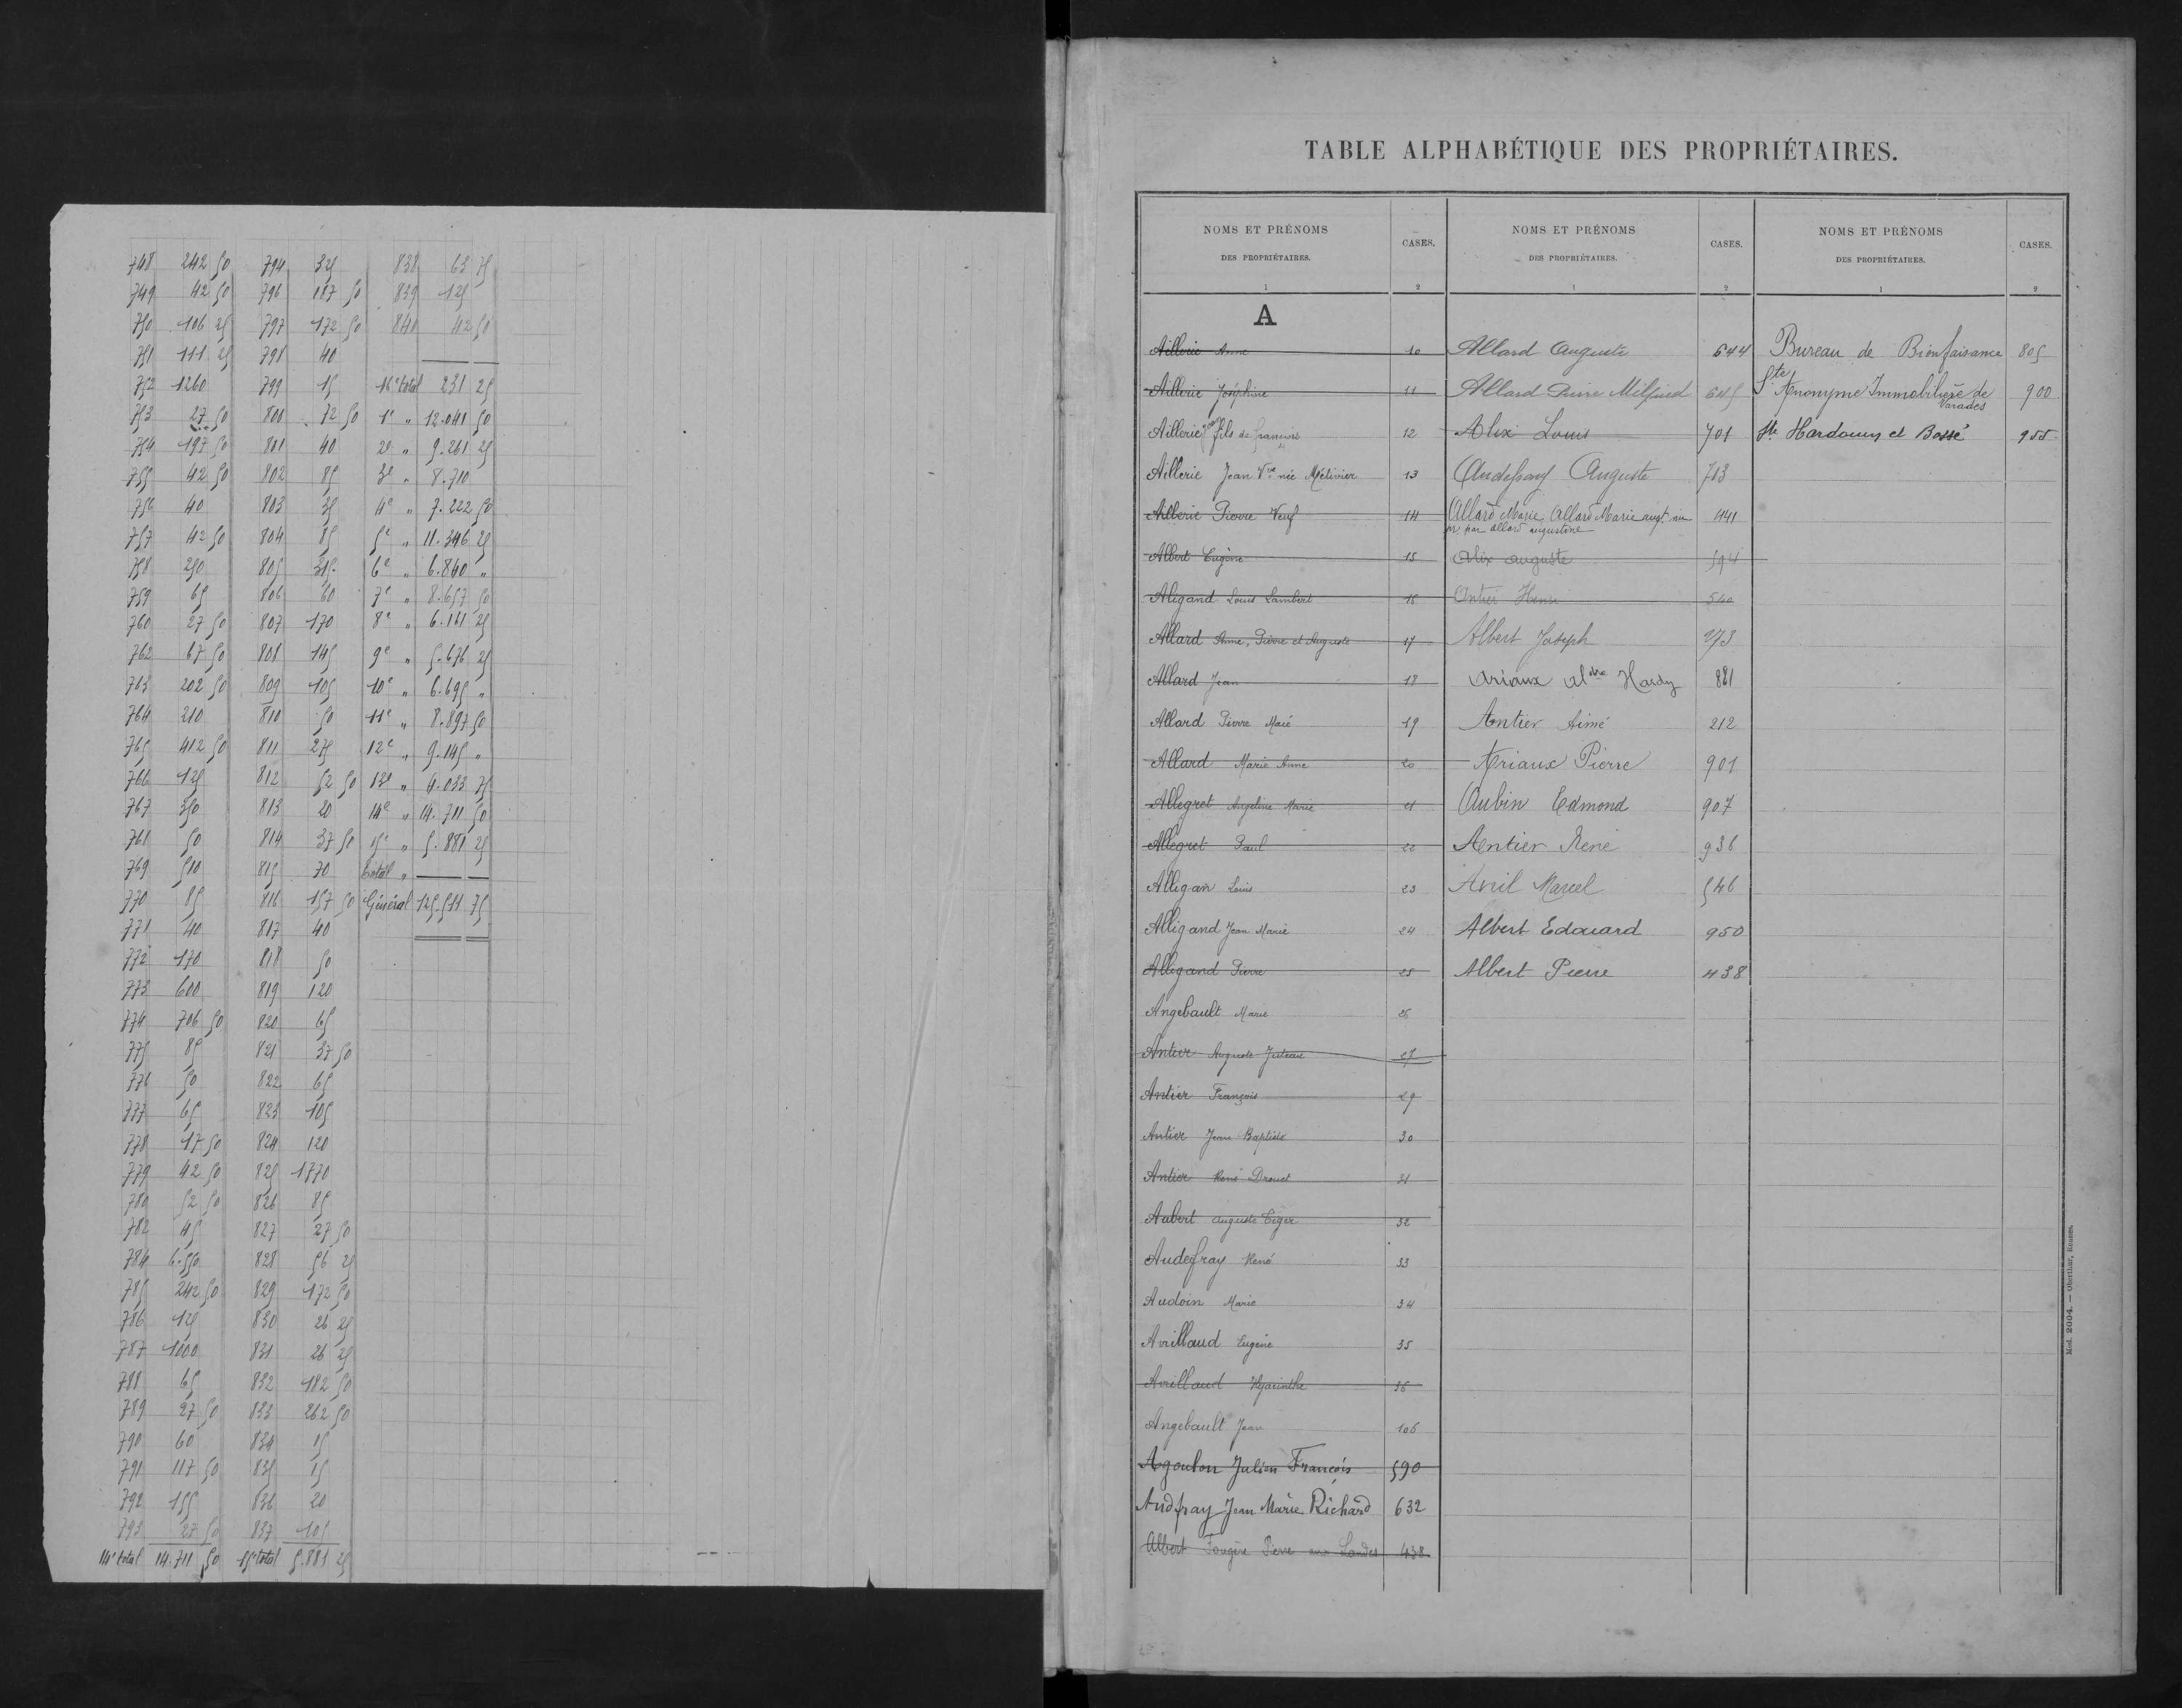 748 242 50 794 35 838 63 75
749 42 50 796 187 50 839 125
750 106 25 797 172 50 840 42 50
751 111 25 798 40
752 1260 799 15 16e total 231 25
753 27 50 800 72 50 1e " 12.041 50
754 197 50 801 40 2e " 9.261 25
755 42 50 802 85 3e " 8.710
756 40 803 35 4e " 7.222 50
757 42 50 804 85 5e " 11.346 25
758 250 805 315 6e " 6.840 "
759 65 806 60 7e " 8.657 50
760 27 50 807 170 8e " 6.161 25
762 67 50 808 145 9e " 5.676 25
763 202 50 809 105 10e " 6.695 "
764 210 810 50 11e " 8.897 50
765 412 50 811 275 12e " 9.145 "
766 125 812 52 50 13e " 4.033 75
767 350 813 20 14e " 14.711 50
768 50 814 37 50 15e " 5.881 25
769 510 815 70 total "
770 85 816 157 50 Général 125.511 75
771 40 817 40
772 170 818 50
773 600 819 120
774 706 50 820 65
775 85 821 37 50
776 50 822 65
777 65 823 105
778 17 50 824 120
779 42 50 825 1770
780 52 50 826 85
782 45 827 27 50
784 6.550 828 56 25
785 242 50 829 172 50
786 125 830 26 25
787 1000 831 26 25
788 65 832 182 50
789 27 50 833 262 50
790 60 834 15
791 117 50 835 15
792 155 836 20
793 27 50 837 105
14e total 14.711 50 15e total 5.881 25
TABLE ALPHABÉTIQUE DES PROPRIÉTAIRES.
NOMS ET PRÉNOMS
DES PROPRIÉTAIRES.
CASES.
1 2
A
Aillerie Anne 10
Aillerie Joséphine 11
Aillerie fils de François 12
Aillerie Jean Vve née Métivier 13
Aillerie Pierre Veuf 14
Albert Eugène 15
Aligand Louis Lambert 16
Allard Anne, Pierre et Auguste 17
Allard Jean 18
Allard Pierre Macé 19
Allard Marie Anne 20
Allegret Angeline Marie 21
Allegret Paul 22
Alligan Louis 23
Alligand Jean Marie 24
Alligand Pierre 25
Angebault Marie 26
Antier Auguste Juteau 27
Antier François 29
Antier Jean Baptiste 30
Antier René Drouet 31
Aubert Auguste Tiger 32
Audefray René 33
Audoin Marie 34
Avrillaud Eugène 35
Avrillaud Hyacinthe 36
Angebault Jean 106
Agoulon Julien François 590
Audfray Jean Marie Richard 632
Albert Fougère Pierre aux Landes 438
NOMS ET PRÉNOMS
DES PROPRIÉTAIRES.
CASES.
1 2
Allard Auguste 644
Allard Pierre 645
Alix Louis 701
Audefray Auguste 713
Allard Marie, Allard Marie augt.
par allard augustine 441
Alix auguste 594
Antier Henri 540
Albert Joseph 273
Ariaux Hardy 881
Antier Aimé 212
Ariaux Pierre 901
Aubin Edmond 907
Antier René 936
Avril Marcel 546
Albert Edouard 950
Albert Pierre 438
NOMS ET PRÉNOMS
DES PROPRIÉTAIRES.
CASES.
1 2
Bureau de Bienfaisance 805
Sté Anonyme Immobilière de
Varades 900
Sté Hardouin et Bossé 955
Mod. 2004. — Oberthur, Rennes.